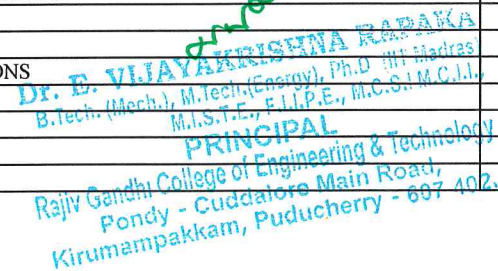 ONS
Dr. E. VIJAYAKRISHNA RAPAKA
B.Tech. (Mech.), M.Tech.(Energy), Ph.D (IIT Madras)
M.I.S.T.E., F.I.I.P.E., M.C.S.I M.C.I.I.,
PRINCIPAL
Rajiv Gandhi College of Engineering & Technology
Pondy - Cuddalore Main Road,
Kirumampakkam, Puducherry - 607 402.